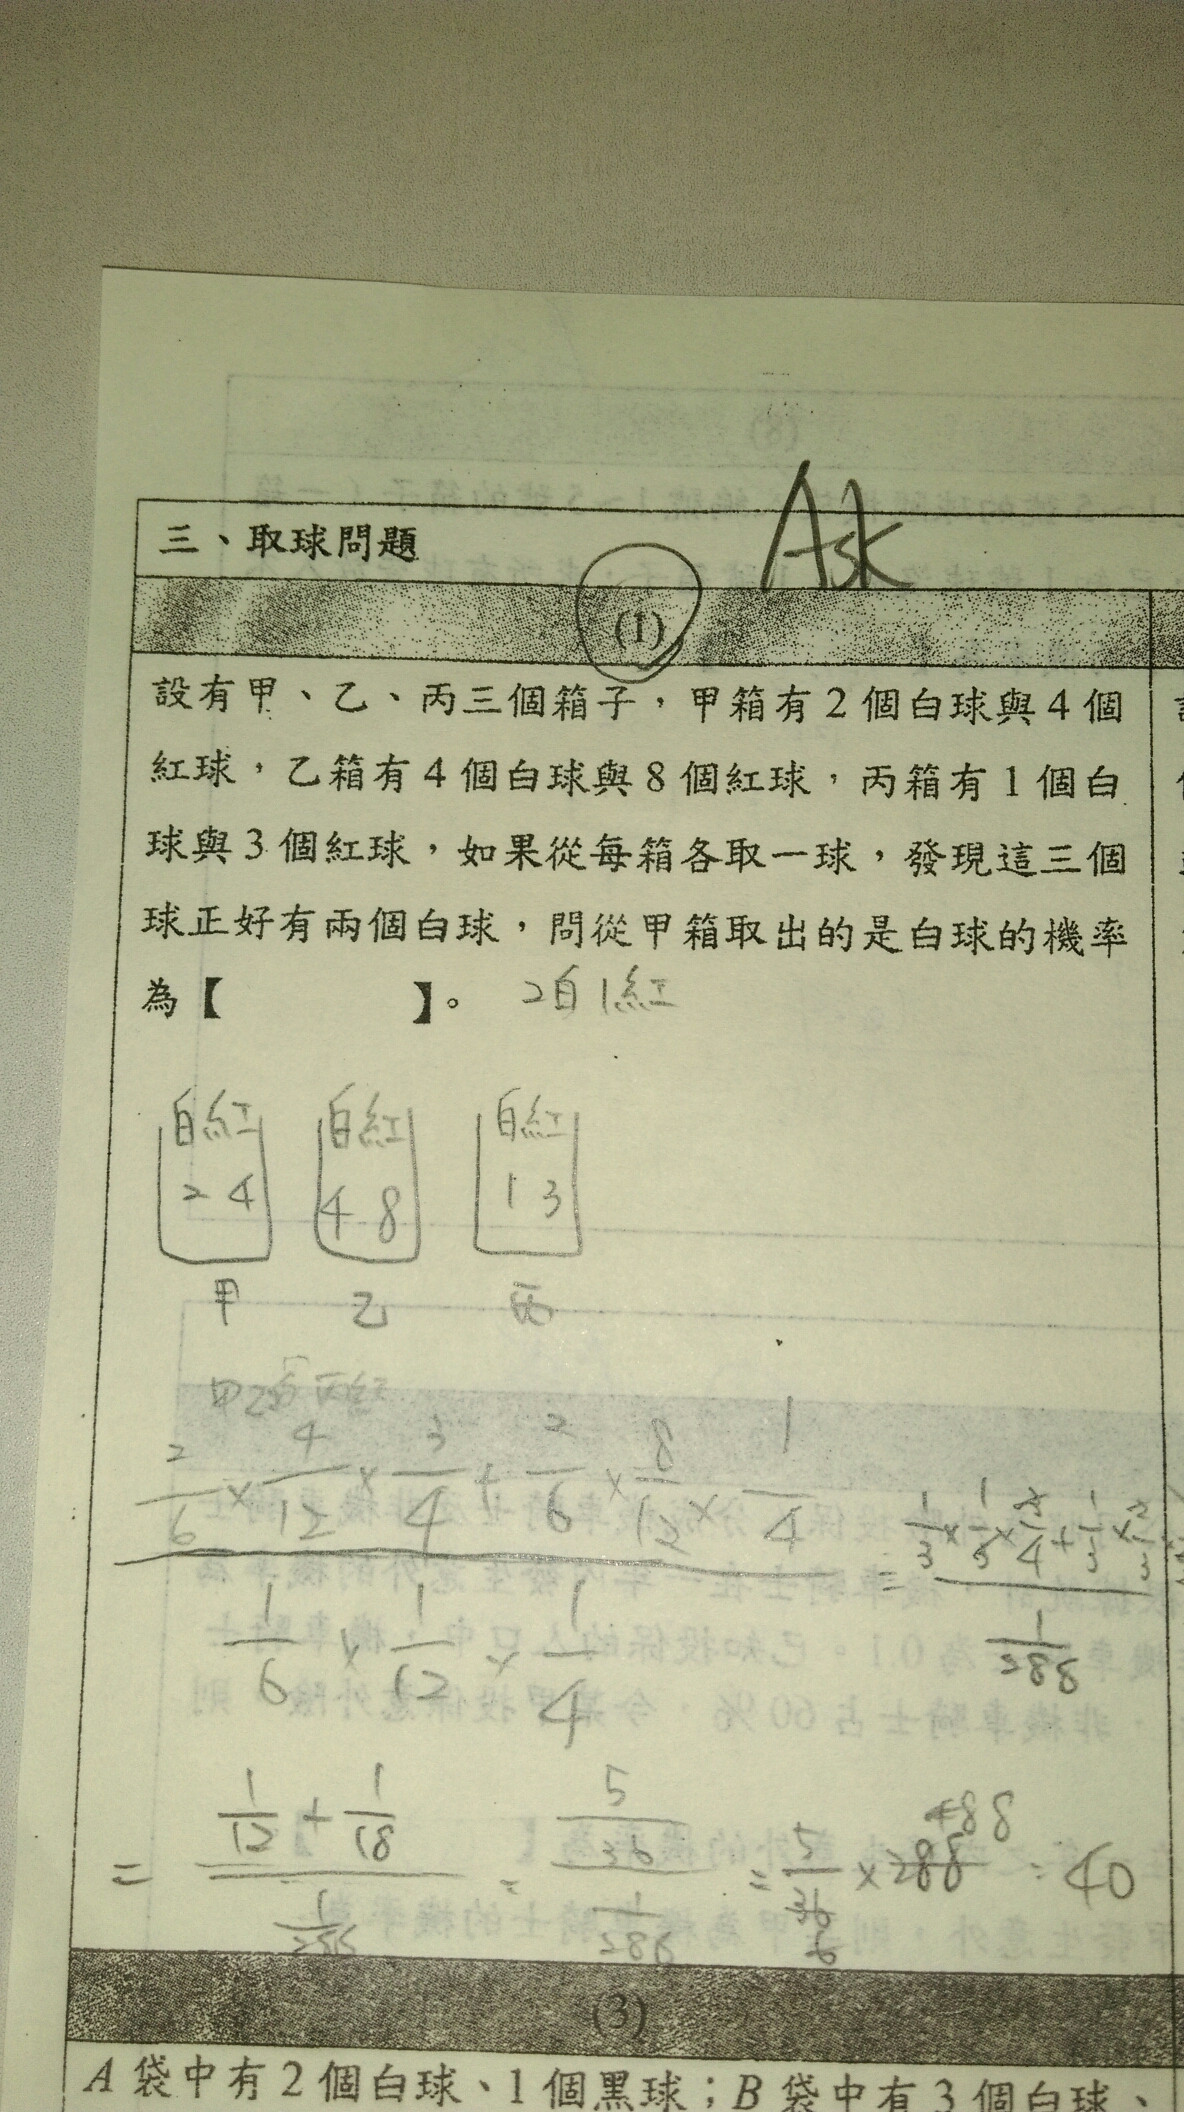 三、取球問題
Ask
(1)
設有甲、乙、丙三個箱子，甲箱有2個白球與4個
紅球，乙箱有4個白球與8個紅球，丙箱有1個白
球與3個紅球，如果從每箱各取一球，發現這三個
球正好有兩個白球，問從甲箱取出的是白球的機率
為【　　　】。 2白1紅
白紅 白紅 白紅
2 4 4 8 1 3
甲 乙 丙
2/6 × 4/12 × 3/4 + 2/6 × 8/12 × 1/4
1/6 × 1/12 × 1/4
= 1/3 × 1/3 × 3/4 + 1/3 × 2/3 ×
1/288
= 1/12 + 1/18 = 5/36 = 5/36 × 288 = 40
1/288 1/288
(3)
A袋中有2個白球、1個黑球；B袋中有3個白球、